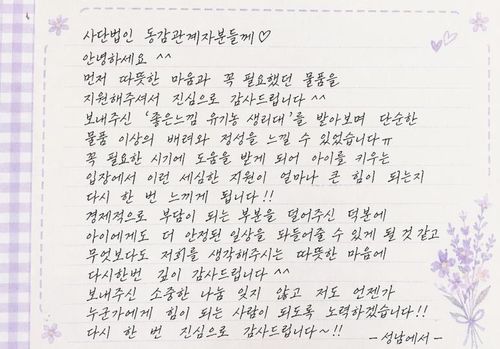 사단법인 동감관계자분들께♡
안녕하세요 ^^
먼저 따뜻한 마음과 꼭 필요했던 물품을
지원해주셔서 진심으로 감사드립니다 ^^
보내주신 '좋은느낌 유기농 생리대'를 받아보며 단순한
물품 이상의 배려와 정성을 느낄 수 있었습니다ㅠ
꼭 필요한 시기에 도움을 받게 되어 아이를 키우는
입장에서 이런 세심한 지원이 얼마나 큰 힘이 되는지
다시 한 번 느끼게 됩니다!!
경제적으로 부담이 되는 부분을 덜어주신 덕분에
아이에게도 더 안정된 일상을 만들어줄 수 있게 될 것 같고
무엇보다도 저희를 생각해주시는 따뜻한 마음에
다시한번 깊이 감사드립니다 ^^
보내주신 소중한 나눔 잊지 않고 저도 언젠가
누군가에게 힘이 되는 사람이 되도록 노력하겠습니다!!
다시 한 번 진심으로 감사드립니다~!!
- 성남에서 -